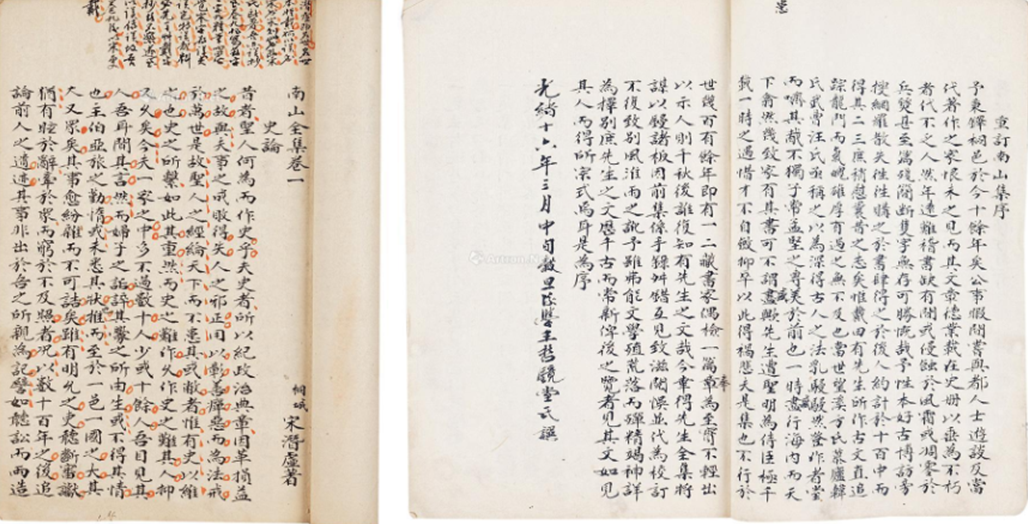 南山全集卷一 桐城 宋潛虛著
史論
昔者聖人何為而作史乎夫史者所以紀政治典章因革損益
之故與夫事之成敗得失人之邪正用以彰善癉惡而為法戒
於萬世是故聖人之經綸天下而不患其或敝者惟有史以維
之也史之所繫如此其重然而史之難作久作史之難其人抑
又久矣今夫一家之中多不過數十人少或十餘人吾目見其
人吾耳聞其言然而婦子之詬誶其釁之所由生或不得其情
也主伯亞旅之勤惰或未悉其狀推而至於一邑一國之大其
人又眾矣其事愈紛雜而不可詰矣雖有明允之吏聽斷審讞
猶有眩於辭牽於眾而窮於不及照者況以數十百年之後追
論前人之遺迹其事非出於吾之所親為記譬如聽訟而兩造
重訂南山集序
予秉鐸桐邑於今十餘年矣公事暇閒嘗與都人士遊談及當
代著作之家恨未之見而其文章德業載在史冊以垂為不朽
者代不乏人然年遠難稽書缺有間或侵蝕於風霜或凋零於
兵燹甚至編殘簡斷隻字無存可勝慨哉予性本好古博訪旁
搜網羅散失往往購之於書肆得之於後人約計於十百中而
得其二三庶稍慰曩昔之志矣惟戴田有先生所作古文直追
踪龍門而氣魄雄厚有過之無不及也當世望溪方氏慕廬韓
氏武曹汪氏亟稱之以為深得古人之法乳駸駸然登作者堂
而嚌其胾不獨子常孟堅之專美於前也一時盡行海內而天
下翕然幾致家有其書可不謂盛歟先生遭聖明為侍臣極千
載一時之遇惜才不自斂抑卒以此得禍悲夫是集也不行於
世幾百有餘年即有一二藏書家偶檢一篇奉為至寶不輕出
以示人則千秋後誰復知有先生之文哉今幸得先生全集將
謀以鐫諸板因前集係手錄舛錯互見致滋閒悞並代為校訂
不復致別風淮雨之訛予雖弗能文學殖荒落而殫精竭神詳
為擇別庶先生之文歷千古而常新俾後之覽者見其文如見
其人而得所宗式焉耳是為序
光緒十六年三月中旬穀旦王哲鏡堂氏撰